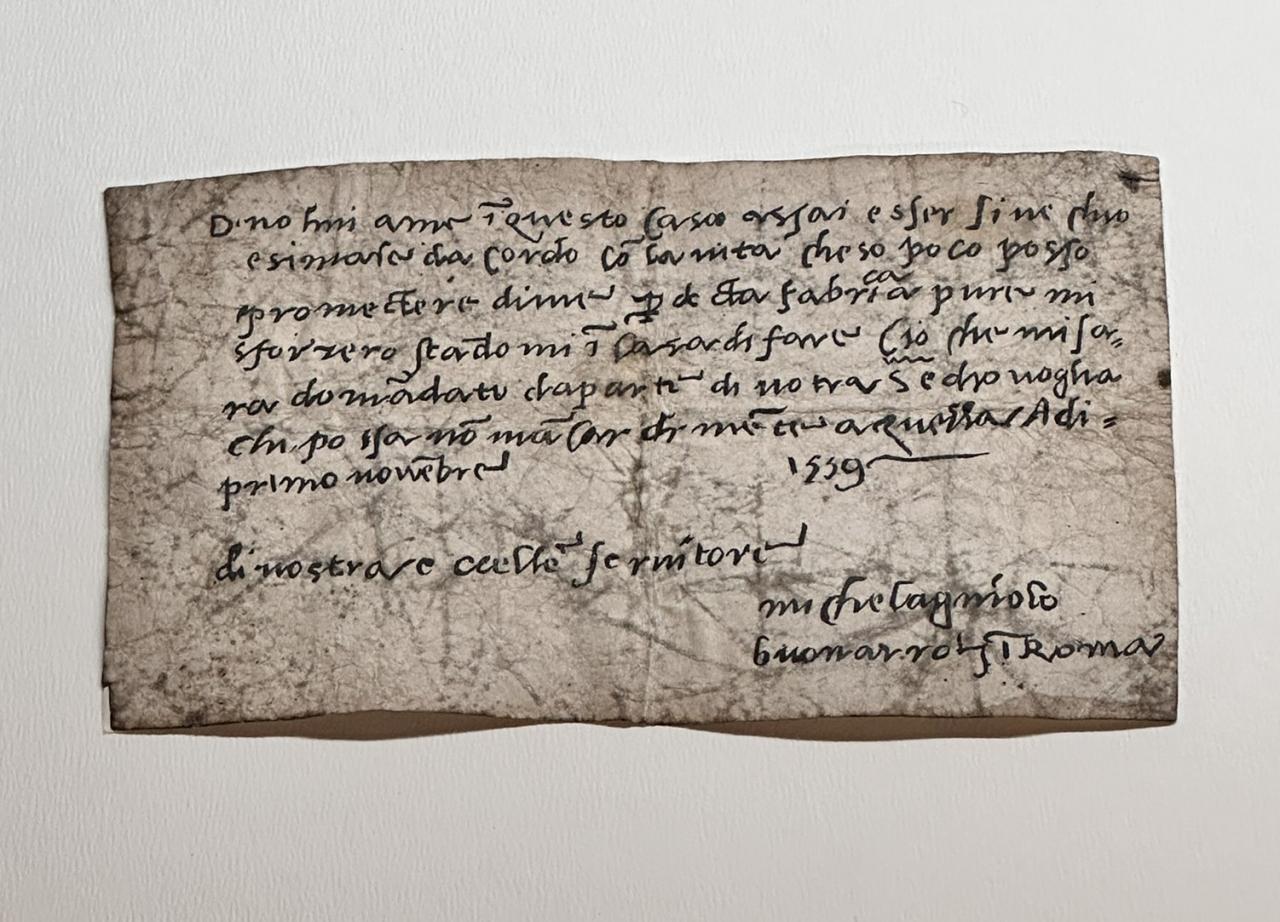 D: no lmi a me ī questo caso assai esser sì ue chio
esimase da cordo cō la uita che so poco posso
promectere di me p̱ decta fabrica pure mi
sforzero stādomi ī casa di fare ciò che mi sa=
ra domādato da parte di uostra S e dio uoglia
chi possa nō mācar di me te a quella Adi=
primo novēbre 1559
di uostra eccellē seruitore
michelagniolo
buonarroti ī Roma